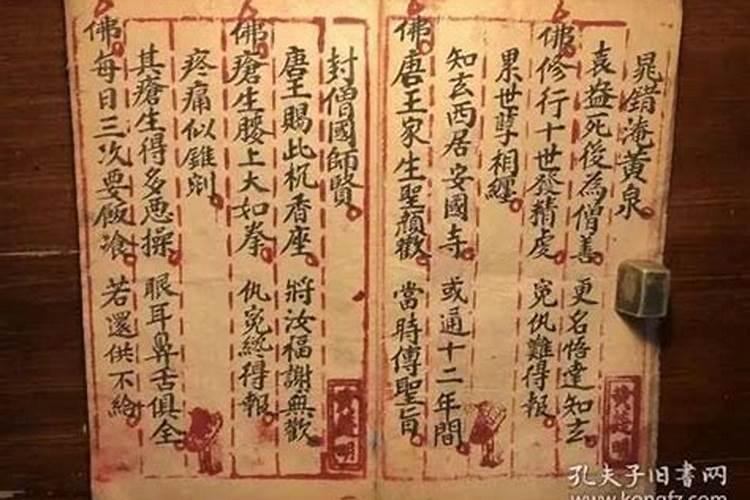 晁錯淹黄泉
袁益死後為僧善 更名悟達知玄
佛修行十世發精虔 冤仇難得報
累世孽相纏
知玄西居安國寺 或通十二年間
佛唐王家生聖顔歡 當時傳聖旨
封僧國師賢
唐王賜此机香座 將汝福謝無歡
佛瘡生腰上大如拳 仇冤終得報
疼痛似錐剜
其瘡生得多悪操 眼耳鼻舌俱全
佛每日三次要飯飡 若還供不給
孔夫子旧书网